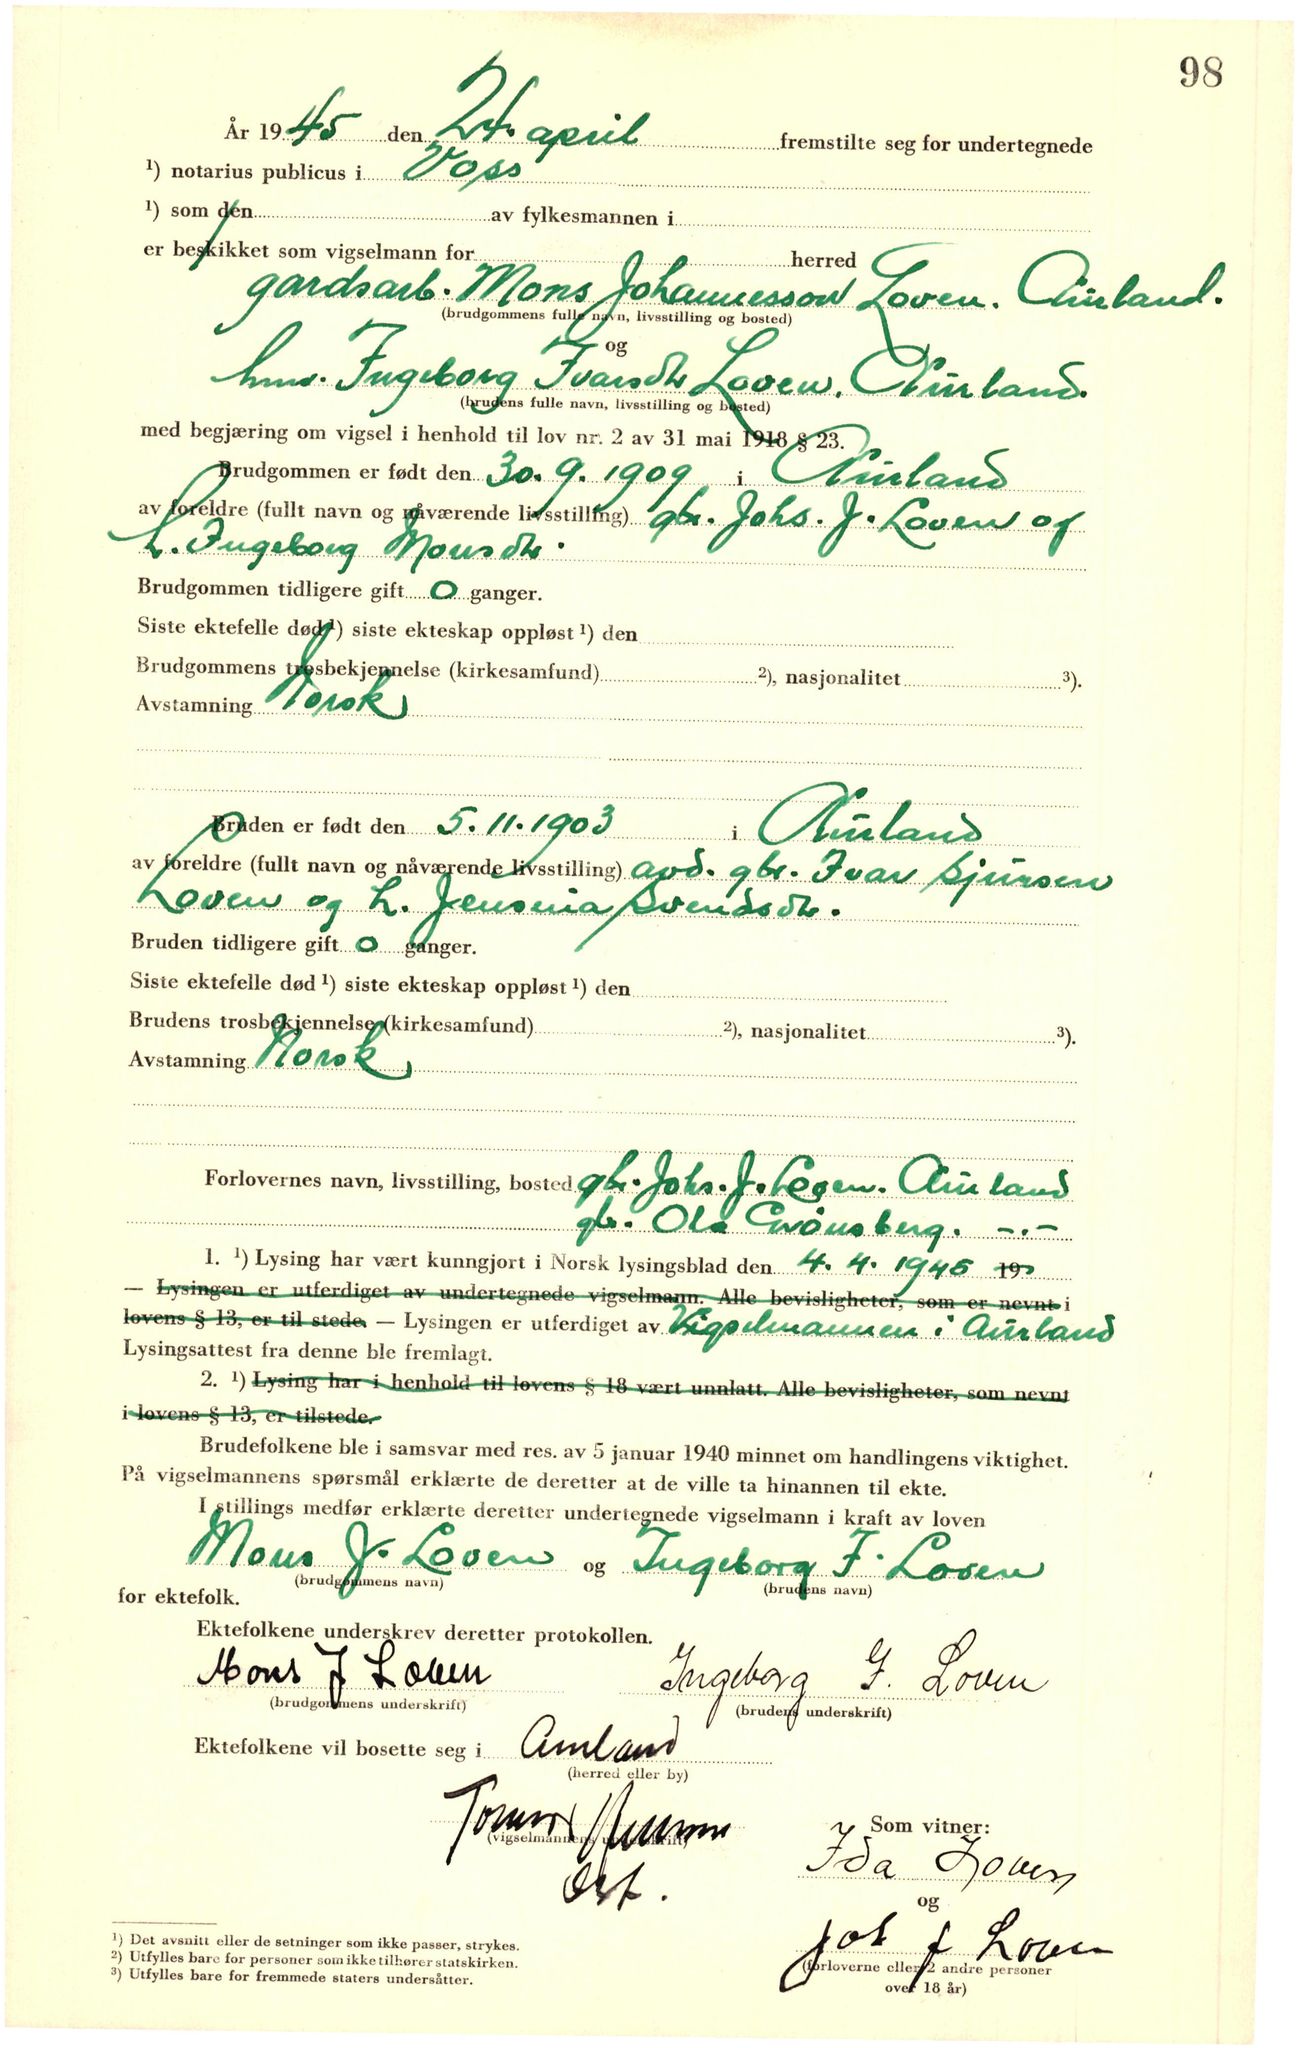 98
År 1945 den 24. april fremstilte seg for undertegnede
¹) notarius publicus i Voss
¹) som den av fylkesmannen i
er beskikket som vigselmann for herred
gardsarb. Mons Johannesson Loven. Aurland.
(brudgommens fulle navn, livsstilling og bosted)
og
hmv. Ingeborg Ivarsdtr Loven. Aurland.
(brudens fulle navn, livsstilling og bosted)
med begjæring om vigsel i henhold til lov nr. 2 av 31 mai 1918 § 23.
Brudgommen er født den 30. 9. 1909 i Aurland
av foreldre (fullt navn og nåværende livsstilling) gbr. Johs. J. Loven og
h. Ingeborg Monsdtr.
Brudgommen tidligere gift 0 ganger.
Siste ektefelle død ¹) siste ekteskap oppløst ¹) den
Brudgommens trosbekjennelse (kirkesamfund) ²), nasjonalitet ³).
Avstamning Norsk
Bruden er født den 5. 11. 1903 i Aurland
av foreldre (fullt navn og nåværende livsstilling) avd. gbr. Ivar Sjursen
Loven og h. Jensina Svendsdtr.
Bruden tidligere gift 0 ganger.
Siste ektefelle død ¹) siste ekteskap oppløst ¹) den
Brudens trosbekjennelse (kirkesamfund) ²), nasjonalitet ³).
Avstamning Norsk
Forlovernes navn, livsstilling, bosted gbr. Johs. J. Loven. Aurland
gbr. Ola Grönsberg. -.-
1. ¹) Lysing har vært kunngjort i Norsk lysingsblad den 4. 4. 1945 19
— Lysingen er utferdiget av undertegnede vigselmann. Alle bevisligheter, som er nevnt i
lovens § 13, er til stede. — Lysingen er utferdiget av Vigselmannen i Aurland
Lysingsattest fra denne ble fremlagt.
2. ¹) Lysing har i henhold til lovens § 18 vært unnlatt. Alle bevisligheter, som nevnt
i lovens § 13, er tilstede.
Brudefolkene ble i samsvar med res. av 5 januar 1940 minnet om handlingens viktighet.
På vigselmannens spørsmål erklærte de deretter at de ville ta hinannen til ekte.
I stillings medfør erklærte deretter undertegnede vigselmann i kraft av loven
Mons J. Loven og Ingeborg I. Loven
(brudgommens navn) (brudens navn)
for ektefolk.
Ektefolkene underskrev deretter protokollen.
Mons J Loven Ingeborg I. Loven
(brudgommens underskrift) (brudens underskrift)
Ektefolkene vil bosette seg i Aurland
(herred eller by)
(vigselmannens underskrift)
Som vitner:
Ida Loven
og
Joh J Loven
(forloverne eller 2 andre personer
over 18 år)
¹) Det avsnitt eller de setninger som ikke passer, strykes.
²) Utfylles bare for personer som ikke tilhører statskirken.
³) Utfylles bare for fremmede staters undersåtter.